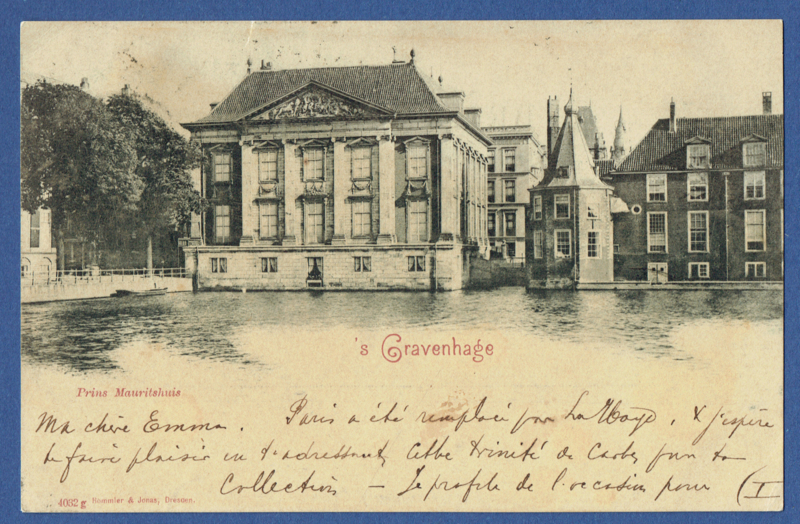 's Gravenhage
Prins Mauritshuis
Ma chère Emma. Paris a été remplacé par La Haye, & j'espère
te faire plaisir en t'adressant cette trinité de Cartes pour ta
Collection – Je profite de l'occasion pour (I
4032 g Rommler & Jonas, Dresden.